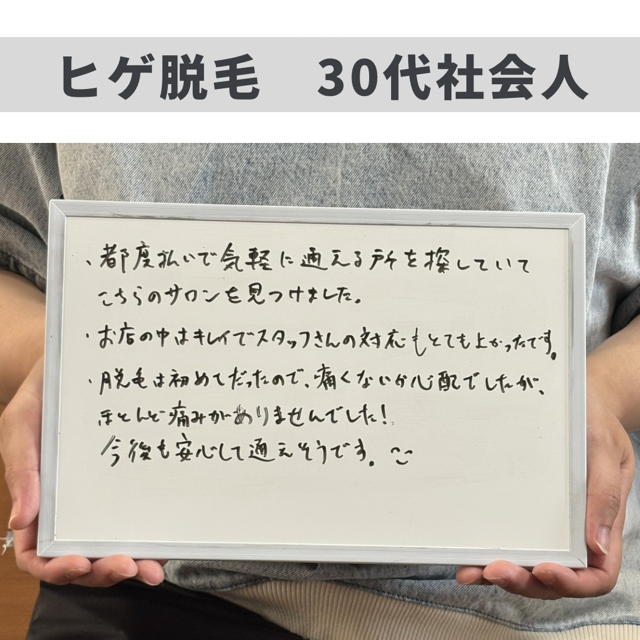 ヒゲ脱毛　30代社会人
・都度払いで気軽に通える所を探していて
こちらのサロンを見つけました。
・お店の中はキレイでスタッフさんの対応もとても上かったです。
・脱毛は初めてだったので、痛くないか心配でしたが、
ほとんど痛みがありませんでした!
今後も安心して通えそうです。